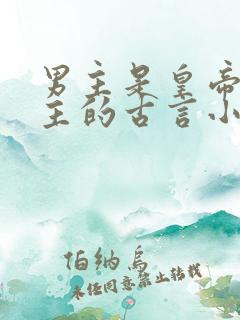 男主是皇帝
主的古言小
伯纳乌
未经同意禁止转载